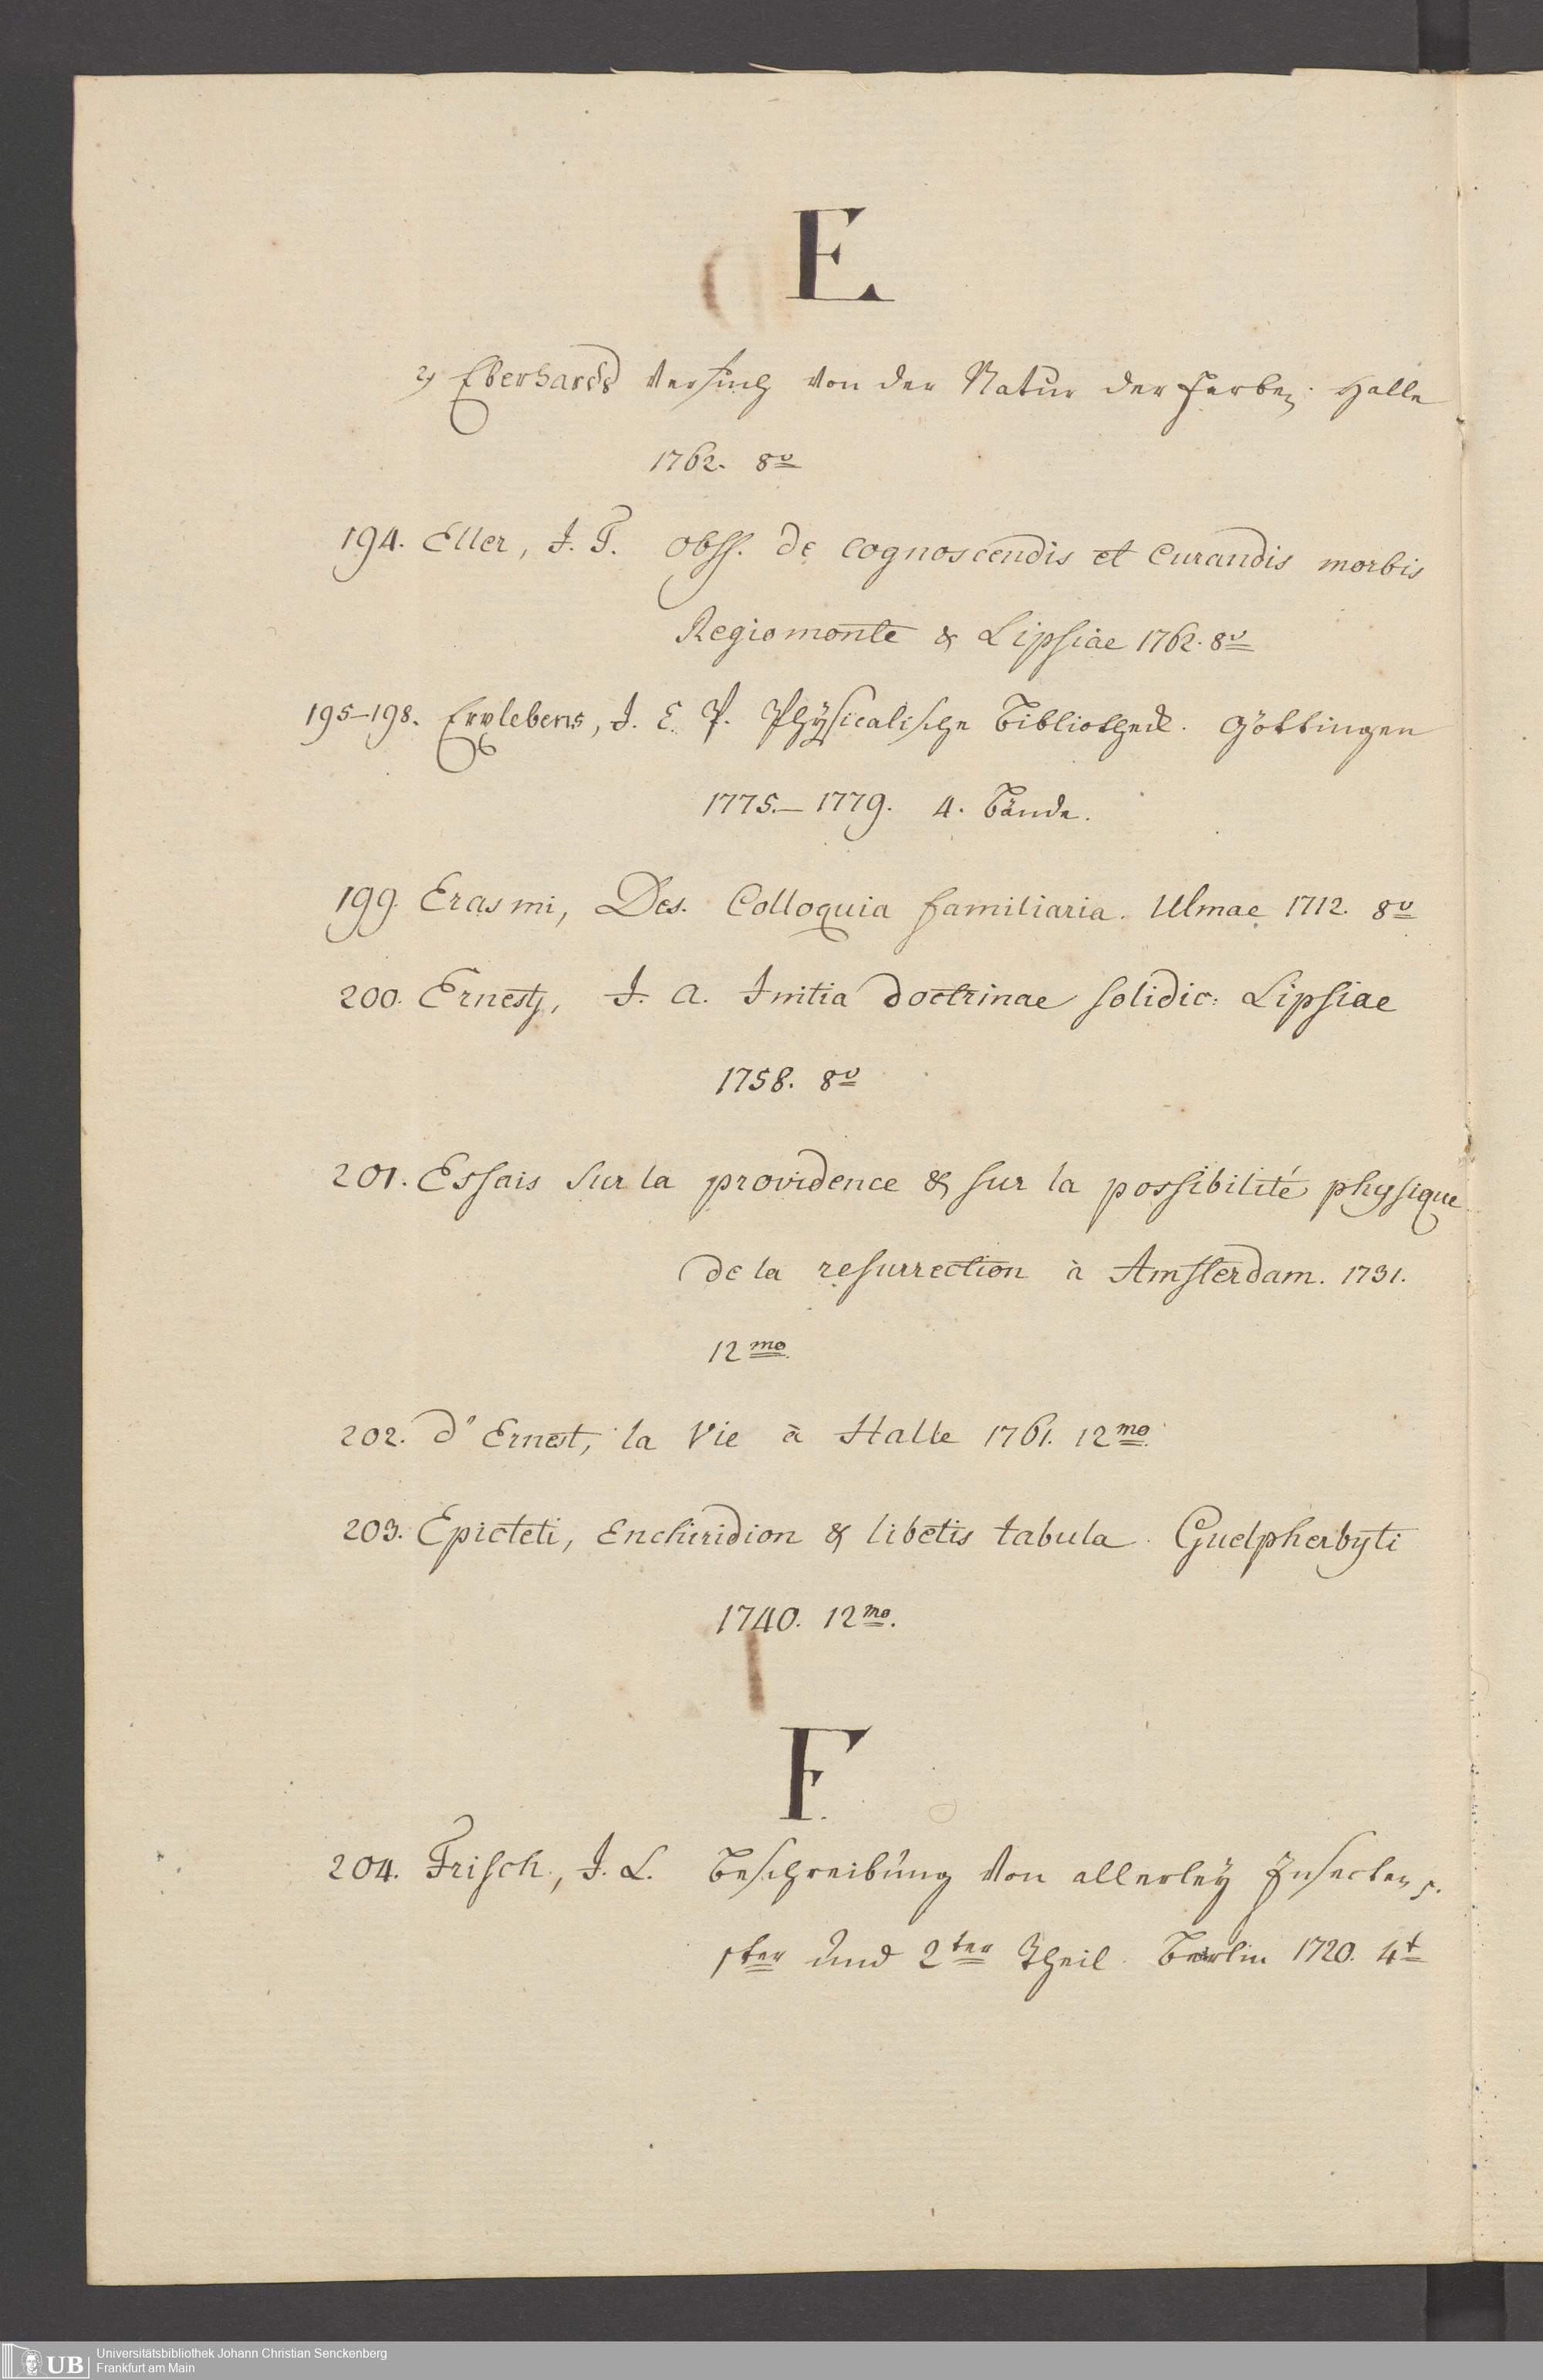 E
2) Eberhards Versuch von der Natur der Farben. Halle
1762. 8vo
194. Eller, J. T. Obss. de cognoscendis et curandis morbis
Regiomonte & Lipsiae 1762. 8vo
195–198. Erxlebens, J. C. P. Physicalische Bibliotheck. Göttingen
1775.–1779. 4. Bände.
199. Erasmi, Des. Colloquia familiaria. Ulmae 1712. 8vo
200. Ernesti, J. A. Initia doctrinae solidio: Lipsiae
1758. 8vo
201. Essais sur la providence & sur la possibilité physique
de la resurrection à Amsterdam. 1731.
12mo
202. d'Ernest, la Vie à Halle 1761. 12mo.
203. Epicteti, Enchiridion & libetis tabula. Guelpherbyti
1740. 12mo.
F.
204. Frisch, J. L. Beschreibung von allerley Insecten
1ter und 2ter Theil. Berlin 1720. 4t
UB
Universitätsbibliothek Johann Christian Senckenberg
Frankfurt am Main